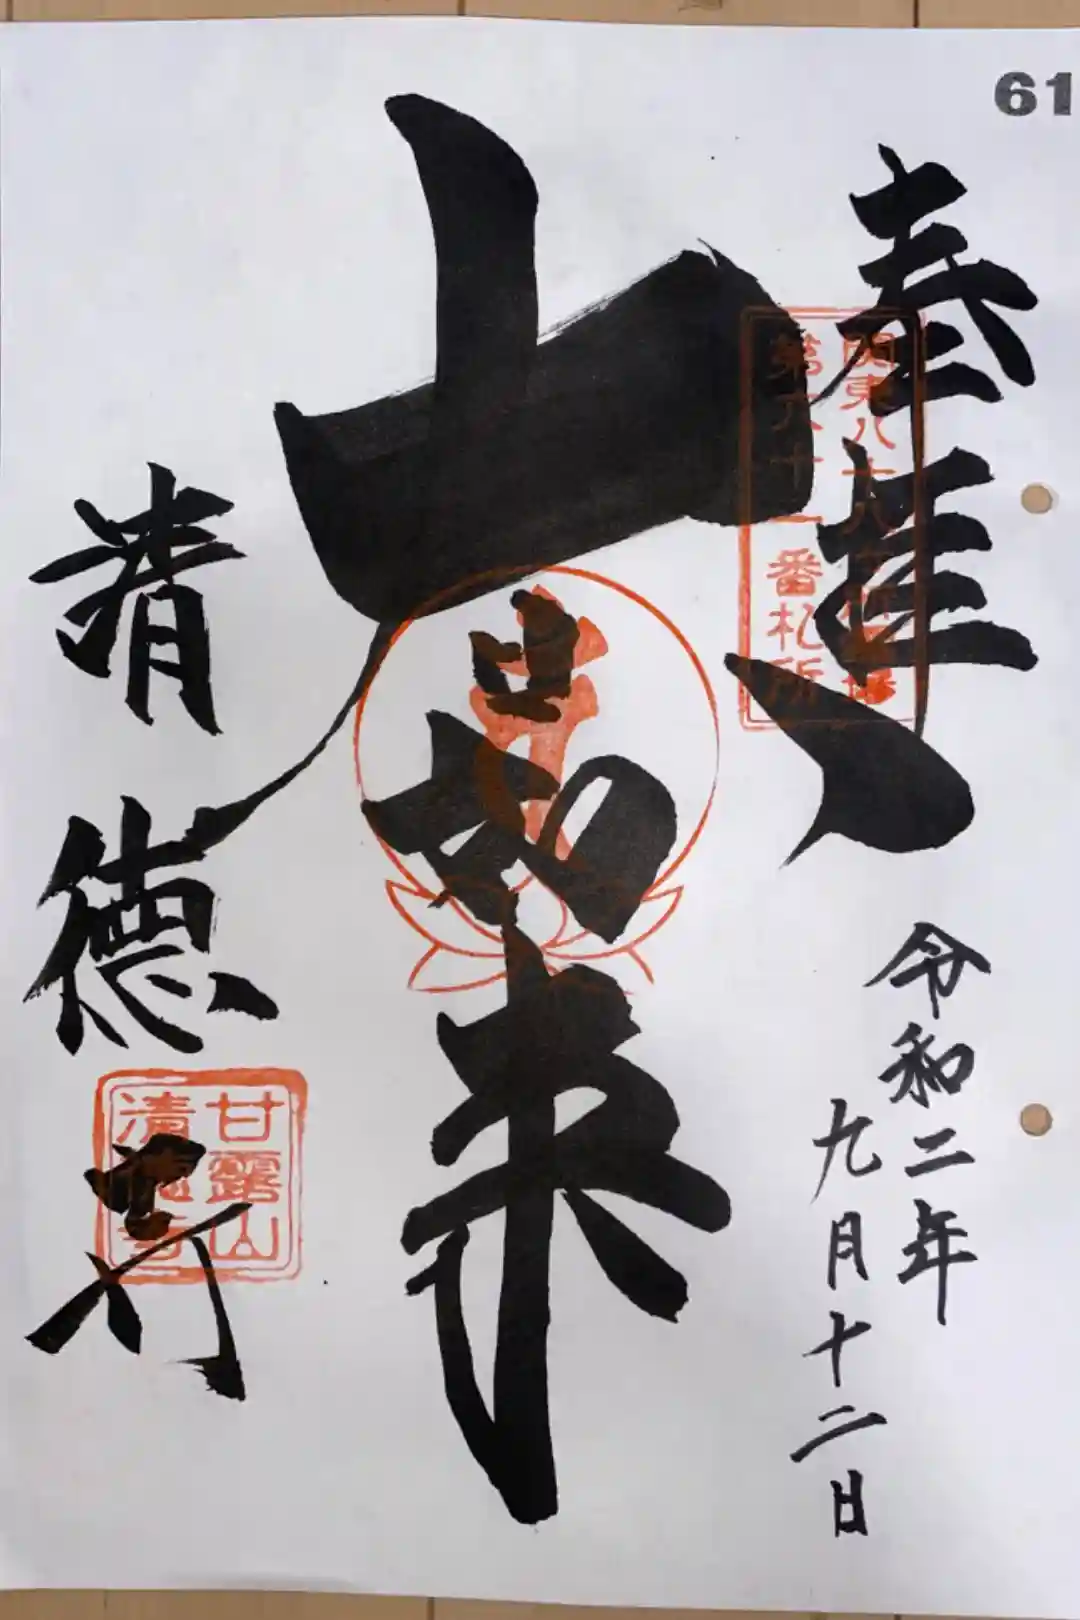 61
奉拝
関東八十八
第六十一番札所
令和二年
九月十二日
大日如来
清徳寺
甘露山
清徳寺